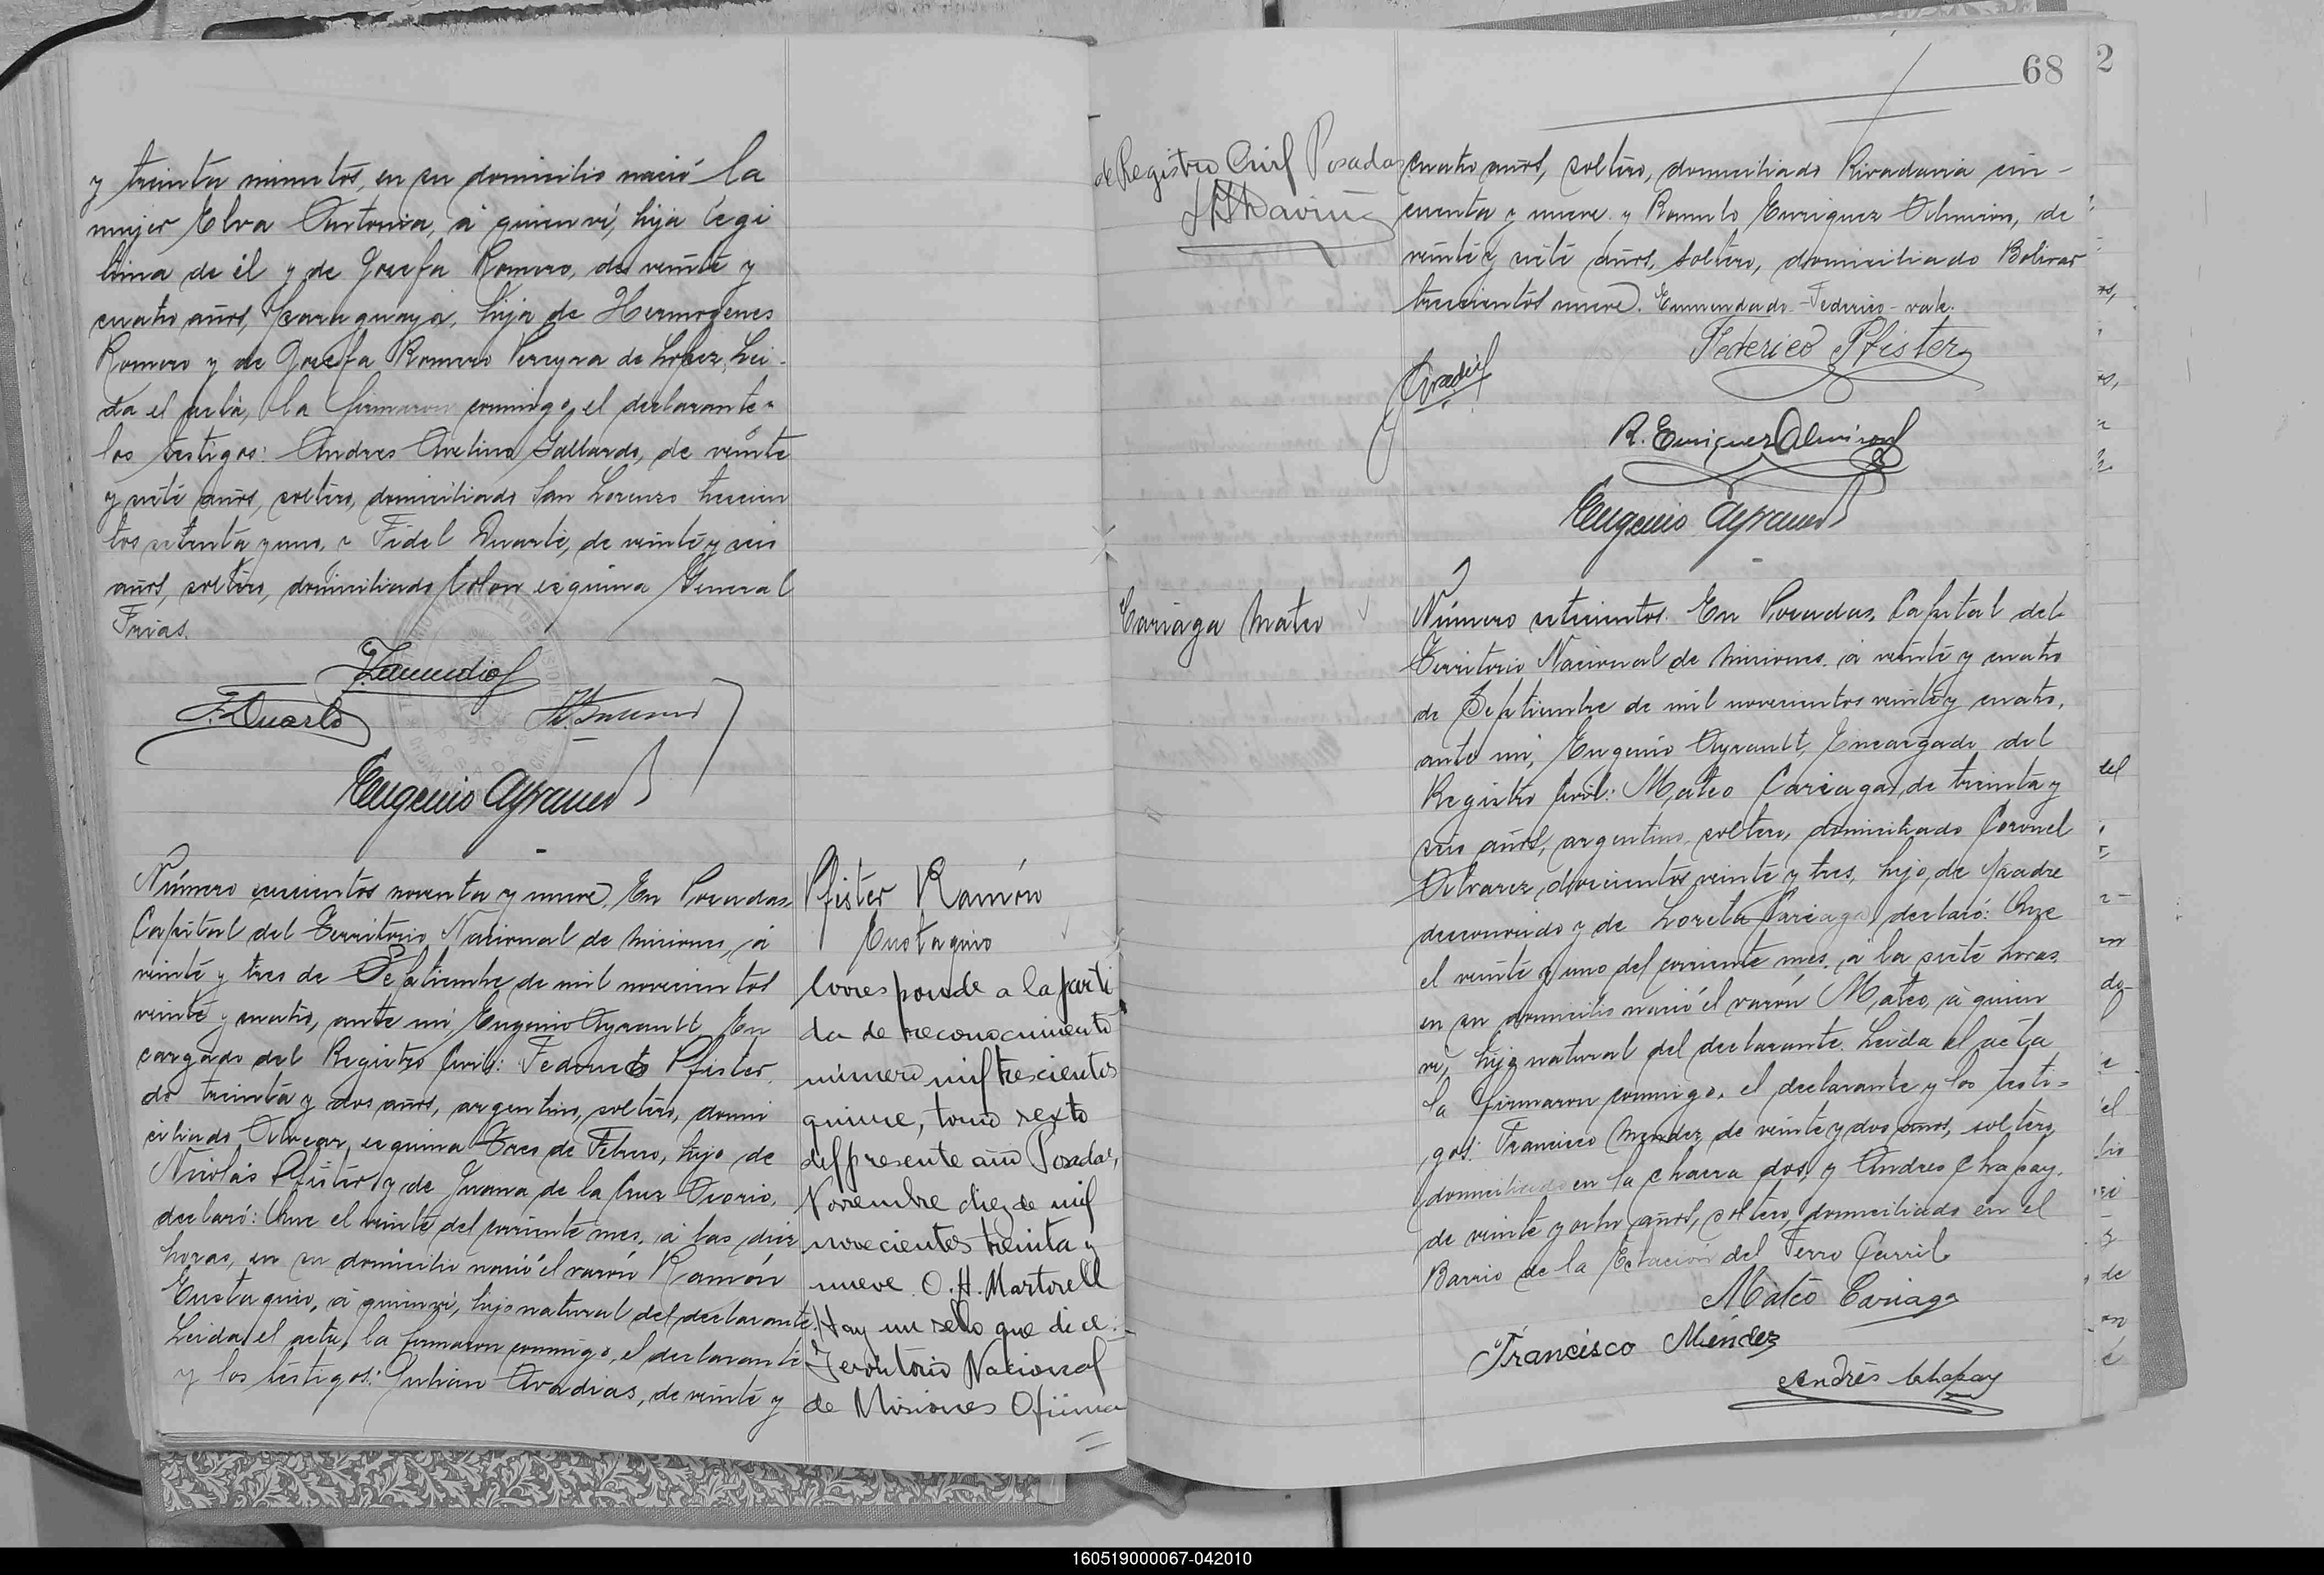 y treinta minutos, en su domicilio nació la
mujer Elva Antonia, á quien ví, hija legi
tima de él y de Josefa Romero, de veinte y
cuatro años, paraguaya, hija de Hermogenes
Romero y de Josefa Romero Pereyra de Lopez. Lei-
da el acta, la firmaron conmigo, el declarante y
los testigos: Andres Avelino Gallardo, de veinte
y siete años, soltero, domiciliado San Lorenzo trescien
tos setenta y uno, y Fidel Duarte, de veinte y seis
años, soltero, domiciliado Colon esquina General
Frias.
F. Duarte
Eugenio Ayrault
Número seiscientos noventa y nueve. En Posadas,
Capital del Territorio Nacional de Misiones, á
veinte y tres de Septiembre de mil novecientos
veinte y cuatro, ante mi, Eugenio Ayrault, En
cargado del Registro Civil: Federico Pfister,
de treinta y dos años, argentino, soltero, domi
ciliado Alvear esquina Tres de Febrero, hijo de
Nicolás Pfister y de Juana de la Cruz Osorio,
declaró: Que el veinte del corriente mes, á las diez
horas, en su domicilio nació el varón Ramón
Eustaquio, á quien ví, hijo natural del declarante.
Leida el acta, la firmaron conmigo, el declarante
y los testigos: Julian Aradias, de veinte y
Pfister Ramón
Eustaquio
Corresponde a la parti
da de reconocimiento
número mil trescientos
quince, tomo sexto
del presente año Posadas,
Noviembre diez de mil
novecientos treinta y
nueve. O. H. Martorell
Hay un sello que dice:
Territorio Nacional
de Misiones Oficina
68
2
de Registro Civil Posadas
cuatro años, soltero, domiciliado Rivadavia cin-
cuenta y nueve y Romulo Enriquez Almiron, de
veinte y siete años, soltero, domiciliado Bolivar
trescientos nueve. Enmendado-Federico-vale.
Federico Pfister
R. Enriquez Almiron
Eugenio Ayrault
Cariaga Mateo
Número setecientos. En Posadas, Capital del
Territorio Nacional de Misiones, á veinte y cuatro
de Septiembre de mil novecientos veinte y cuatro,
ante mi, Eugenio Ayrault, Encargado del
Registro Civil: Mateo Cariaga, de treinta y
seis años, argentino, soltero, domiciliado Coronel
Alvarez, doscientos veinte y tres, hijo, de padre
desconocido y de Loreta Cariaga, declaró: Que
el veinte y uno del corriente mes, á la siete horas
en su domicilio nació el varón Mateo, á quien
ví, hijo natural del declarante. Leida el acta
la firmaron conmigo, el declarante y los testi-
gos: Francisco Mendez, de veinte y dos años, soltero,
domiciliado en la chacra dos, y Andres Chapay,
de veinte y ocho años, soltero, domiciliado en el
Barrio de la Estación del Ferro Carril
Mateo Cariaga
Francisco Méndez
Andrés Chapay
160519000067-042010